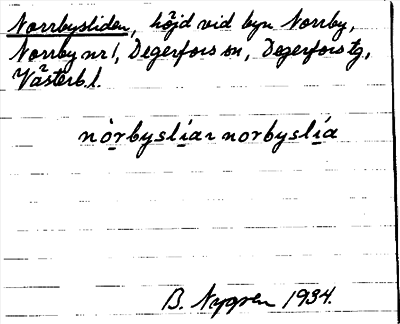 Norrbysliden, höjd vid byn Norrby,
Norrby nr 1, Degerfors sn, Degerfors tg,
Västerb. l.
nòrbyslíar norbyslía
B. Nygren 1934.